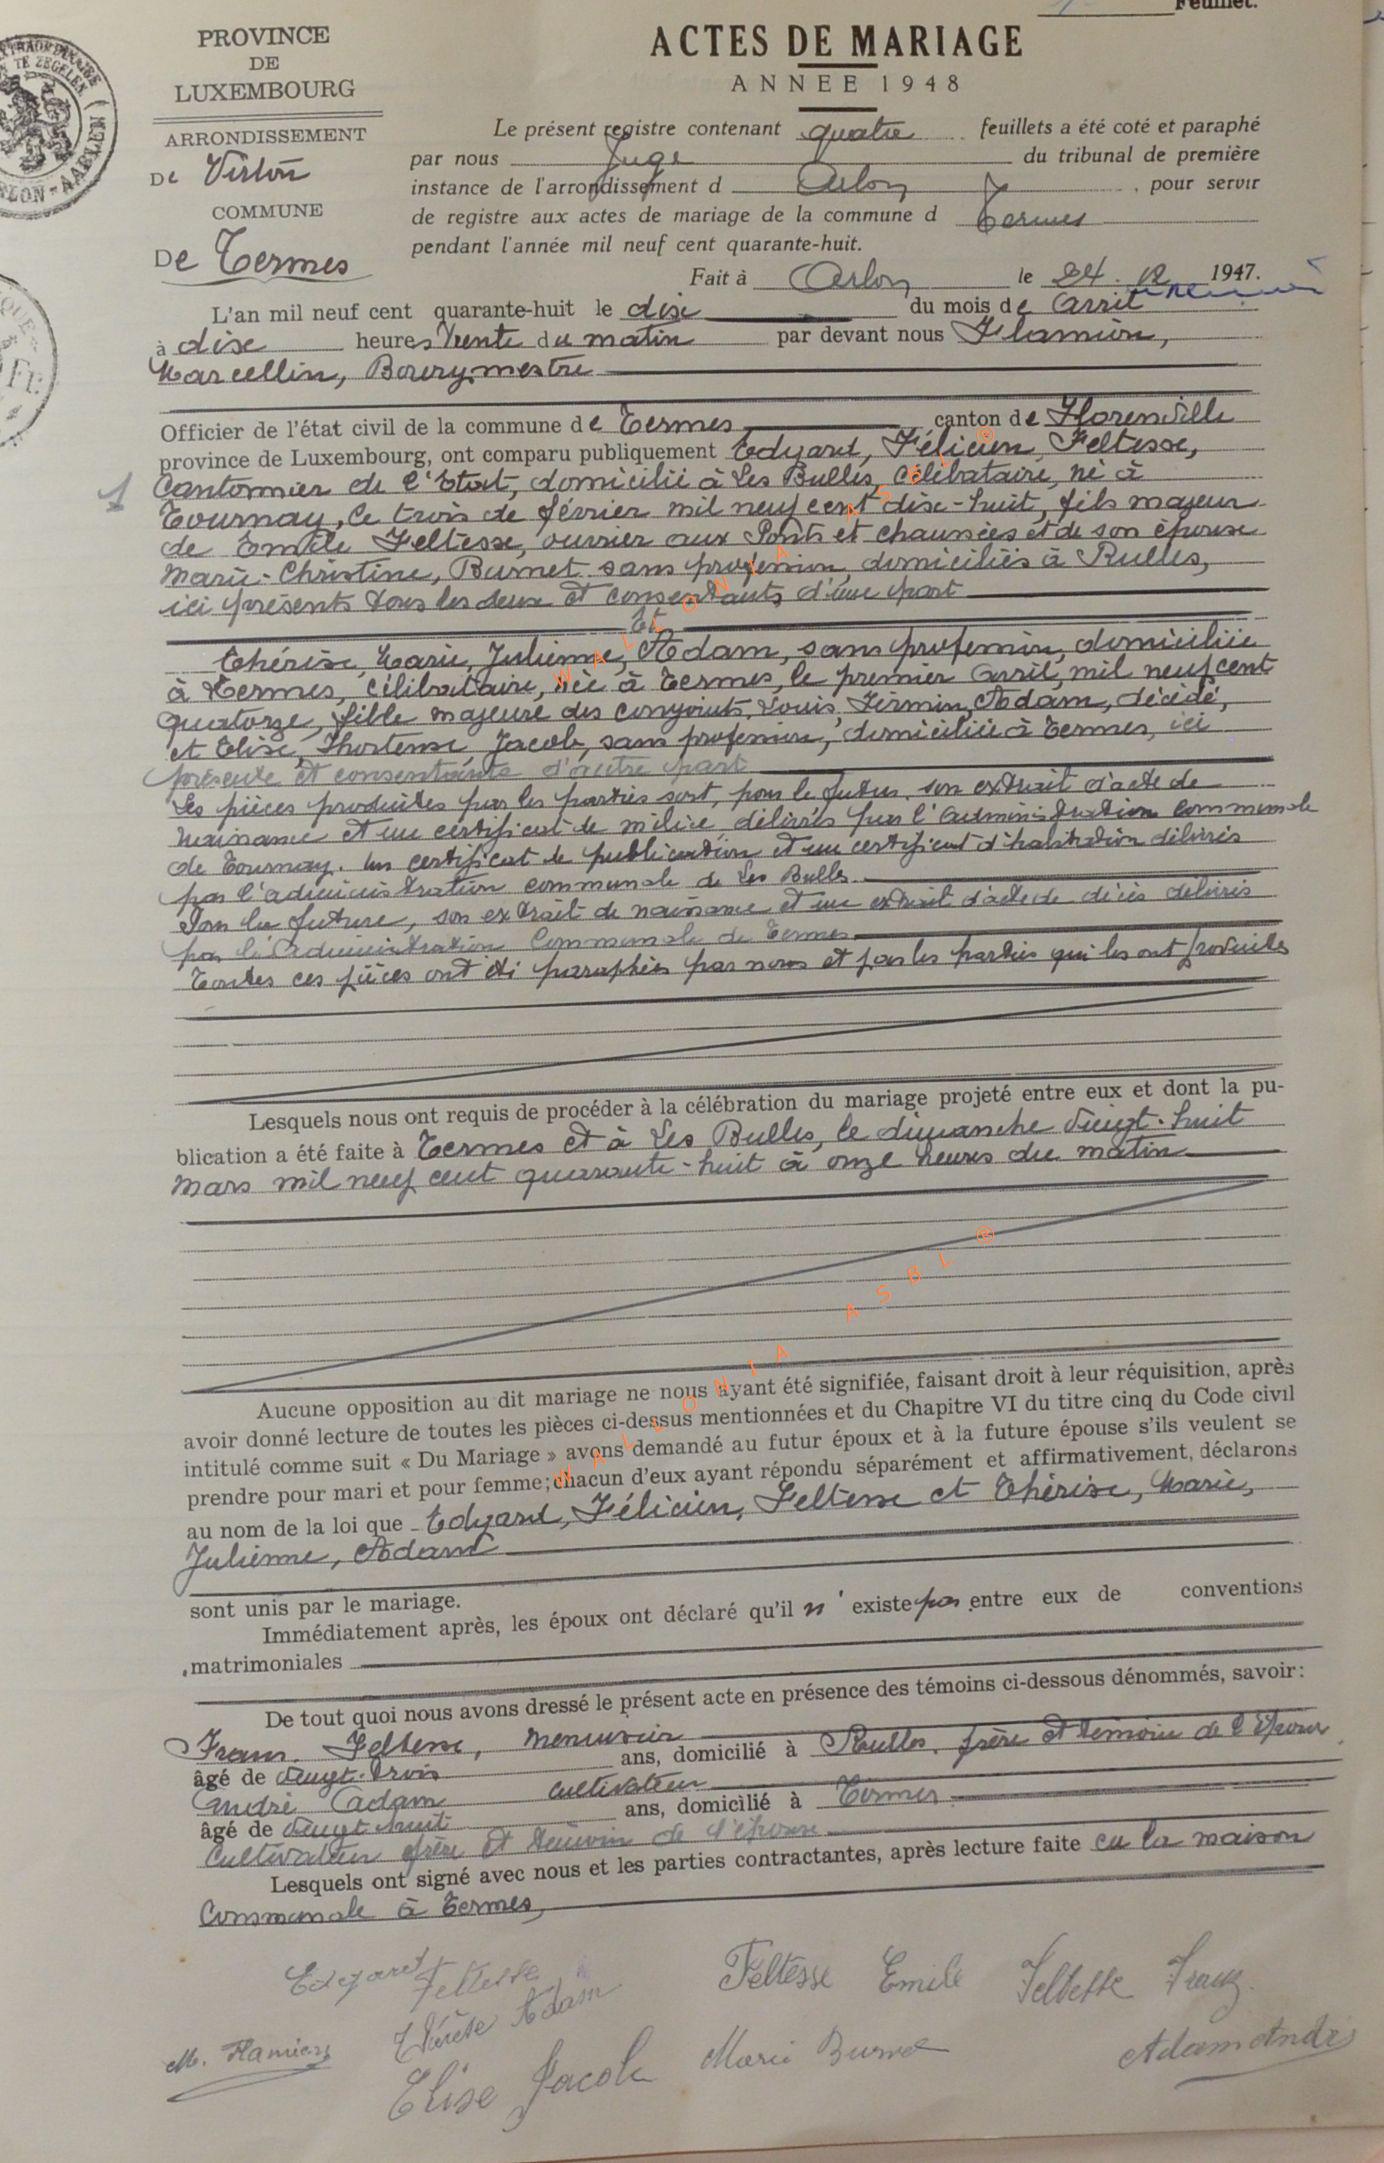 Feuillet.
PROVINCE
DE
LUXEMBOURG
ARRONDISSEMENT
De Virton
COMMUNE
De Termes
ACTES DE MARIAGE
ANNEE 1948
Le présent registre contenant quatre feuillets a été coté et paraphé
par nous Juge du tribunal de première
instance de l'arrondissement d Arlon , pour servir
de registre aux actes de mariage de la commune d Termes
pendant l'année mil neuf cent quarante-huit.
Fait à Arlon le 24. 12 1947.
L'an mil neuf cent quarante-huit le dix du mois de Avril
à dix heures trente du matin par devant nous Flamion,
Marcellin, Bourgmestre
Officier de l'état civil de la commune de Termes canton de Florenville
province de Luxembourg, ont comparu publiquement Edgard, Félicien, Feltesse,
1 Cantonnier de l'Etat, domicilié à Les Bulles, célibataire, né à
Tournay, le trois de février mil neuf cent dix-huit, fils majeur
de Emile Feltesse, ouvrier aux Ponts et chaussées et de son épouse
Marie-Christine, Burnet sans profession, domiciliés à Rulles,
ici présents tous les deux et consentants d'une part
Et
Thérèse, Marie, Julienne, Adam, sans profession, domiciliée
à Termes, célibataire, née à Termes, le premier avril, mil neuf cent
quatorze, fille majeure des conjoints, Louis, Firmin, Adam, décédé,
et Elise, Hortense, Jacob, sans profession, domiciliée à Termes, ici
présente et consentante d'autre part
Les pièces produites par les parties sont, pour le futur, son extrait d'acte de
naissance et un certificat de milice délivrés par l'administration communale
de Tournay. un certificat de publication et un certificat d'habitation délivrés
par l'administration communale de Les Bulles.
Pour la future, son extrait de naissance et un extrait d'acte de décès délivrés
par l'administration Communale de Termes
Toutes ces pièces ont été paraphées par nous et par les parties qui les ont produites
Lesquels nous ont requis de procéder à la célébration du mariage projeté entre eux et dont la pu-
blication a été faite à Termes et à Les Bulles, le dimanche vingt-huit
mars mil neuf cent quarante-huit à onze heures du matin
Aucune opposition au dit mariage ne nous ayant été signifiée, faisant droit à leur réquisition, après
avoir donné lecture de toutes les pièces ci-dessus mentionnées et du Chapitre VI du titre cinq du Code civil
intitulé comme suit « Du Mariage » avons demandé au futur époux et à la future épouse s'ils veulent se
prendre pour mari et pour femme; chacun d'eux ayant répondu séparément et affirmativement, déclarons
au nom de la loi que Edgard, Félicien, Feltesse et Thérèse, Marie,
Julienne, Adam
sont unis par le mariage.
Immédiatement après, les époux ont déclaré qu'il n' existe pas entre eux de conventions
matrimoniales
De tout quoi nous avons dressé le présent acte en présence des témoins ci-dessous dénommés, savoir:
Franz Feltesse, menuisier
âgé de vingt-trois ans, domicilié à Rulles, frère et témoin de l'époux
André Adam cultivateur
âgé de vingt huit ans, domicilié à Termes
cultivateur frère et témoin de l'épouse
Lesquels ont signé avec nous et les parties contractantes, après lecture faite en la maison
Communale à Termes,
Edgard Feltesse
Feltesse Emile
Feltesse Franz
Thérèse Adam
M. Flamion
Marie Burnet
Adam André
Elise Jacob
WALLONIA ASBL ®
WALLONIA ASBL ®